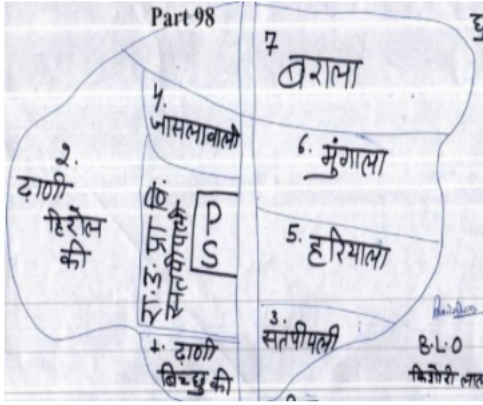 Part 98
7
बराला
4.
जामलावाली
6. मुंगाला
2.
ढाणी
हिरोल
की
P
S
5. हरियाला
3.
सतपीपली
1. ढाणी
बिच्छु की
B.L.O
किशोरी लाल